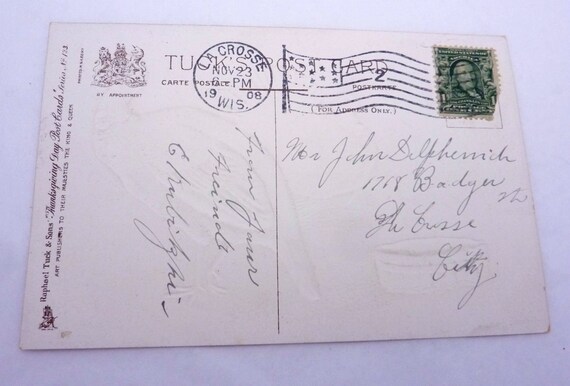 TUCK'S POST CARD
CARTE POSTALE
POSTKARTE
(FOR ADDRESS ONLY.)
BY APPOINTMENT
LA CROSSE
NOV 23
6 PM
1908
WIS.
2
Raphael Tuck & Sons' "Thanksgiving Day Post Cards" Series Nº 123
ART PUBLISHERS TO THEIR MAJESTIES THE KING & QUEEN
From Your
Freinds
John
1718 Badger St
La Crosse
City